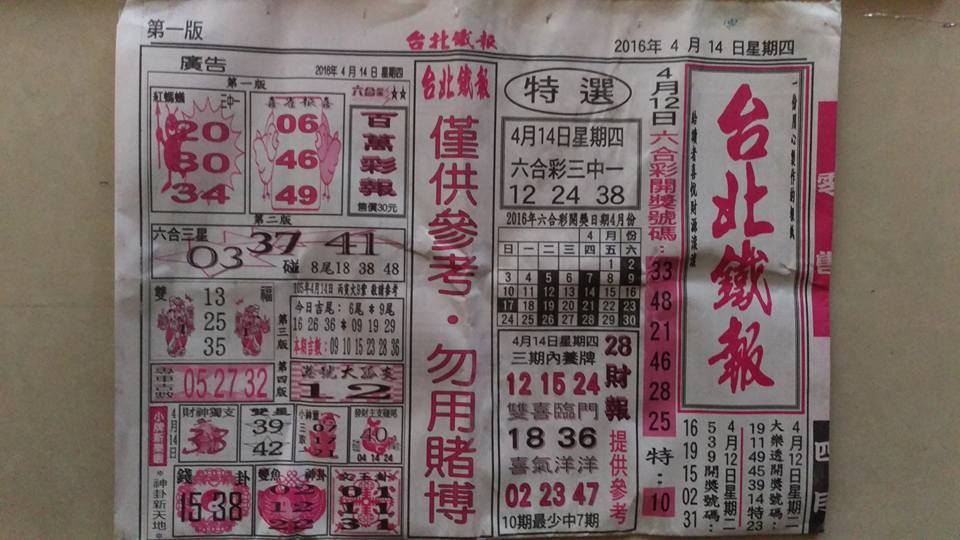 第一版
台北鐵報
2016年 4 月 14 日星期四
廣告
第一版
2016年 4 月 14 日 星期四
紅螞蟻
三中一
20
30
34
06
46
49
六合彩 ★★
百萬彩報
售價30元
第二版
六合三星
03 37 41
碰 8尾18 38 48
雙福
13
25
35
第三版
105年4月14日 丙寅大9雲 敬請參考
今日吉尾: 6尾 * 9尾
16 26 36 * 09 19 29
本期吉數: 09 10 15 23 28 36
05.27.32
第四版
12
小牌新樂園
4月14日
財神獨支
33
雙星
39
42
發財主支碰尾
40
04 14 24
*神卦新天地*
錢卦
15.38
雙魚
02
12
神卦
01
11
31
台北鐵報
僅供參考・勿用賭博
特選
4月14日星期四
六合彩三中一
12 24 38
2016年六合彩開獎日期4月份
4 月 份
日 一 二 三 四 五 六
1 2
3 4 5 6 7 8 9
10 11 12 13 14 15 16
17 18 19 20 21 22 23
24 25 26 27 28 29 30
4月14日星期四
三期內養牌
12 15 24
雙喜臨門
18 36
喜氣洋洋
02 23 47
10期最少中7期
28
財報
提供參考
4月12日六合彩開獎號碼:
33
48
21
46
28
25
特:
10
台北鐵報
一份用心製作的報紙
給讀者喜悅財源滾滾
4月12日星期二
大樂透開獎號碼:
19
11
49
45
39
14
特23
4月12日星期二
539開獎號碼:
16
19
15
02
31
零售